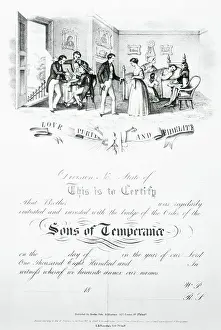 LOVE PURITY AND FIDELITY
Division No. State of
This is to Certify
That Brother was regularly
initiated and invested with the badge of the Order of the
Sons of Temperance
on the day of in the year of our Lord
One Thousand Eight Hundred and In
witness whereof we hereunto annex our names
W. P.
18 R. S.